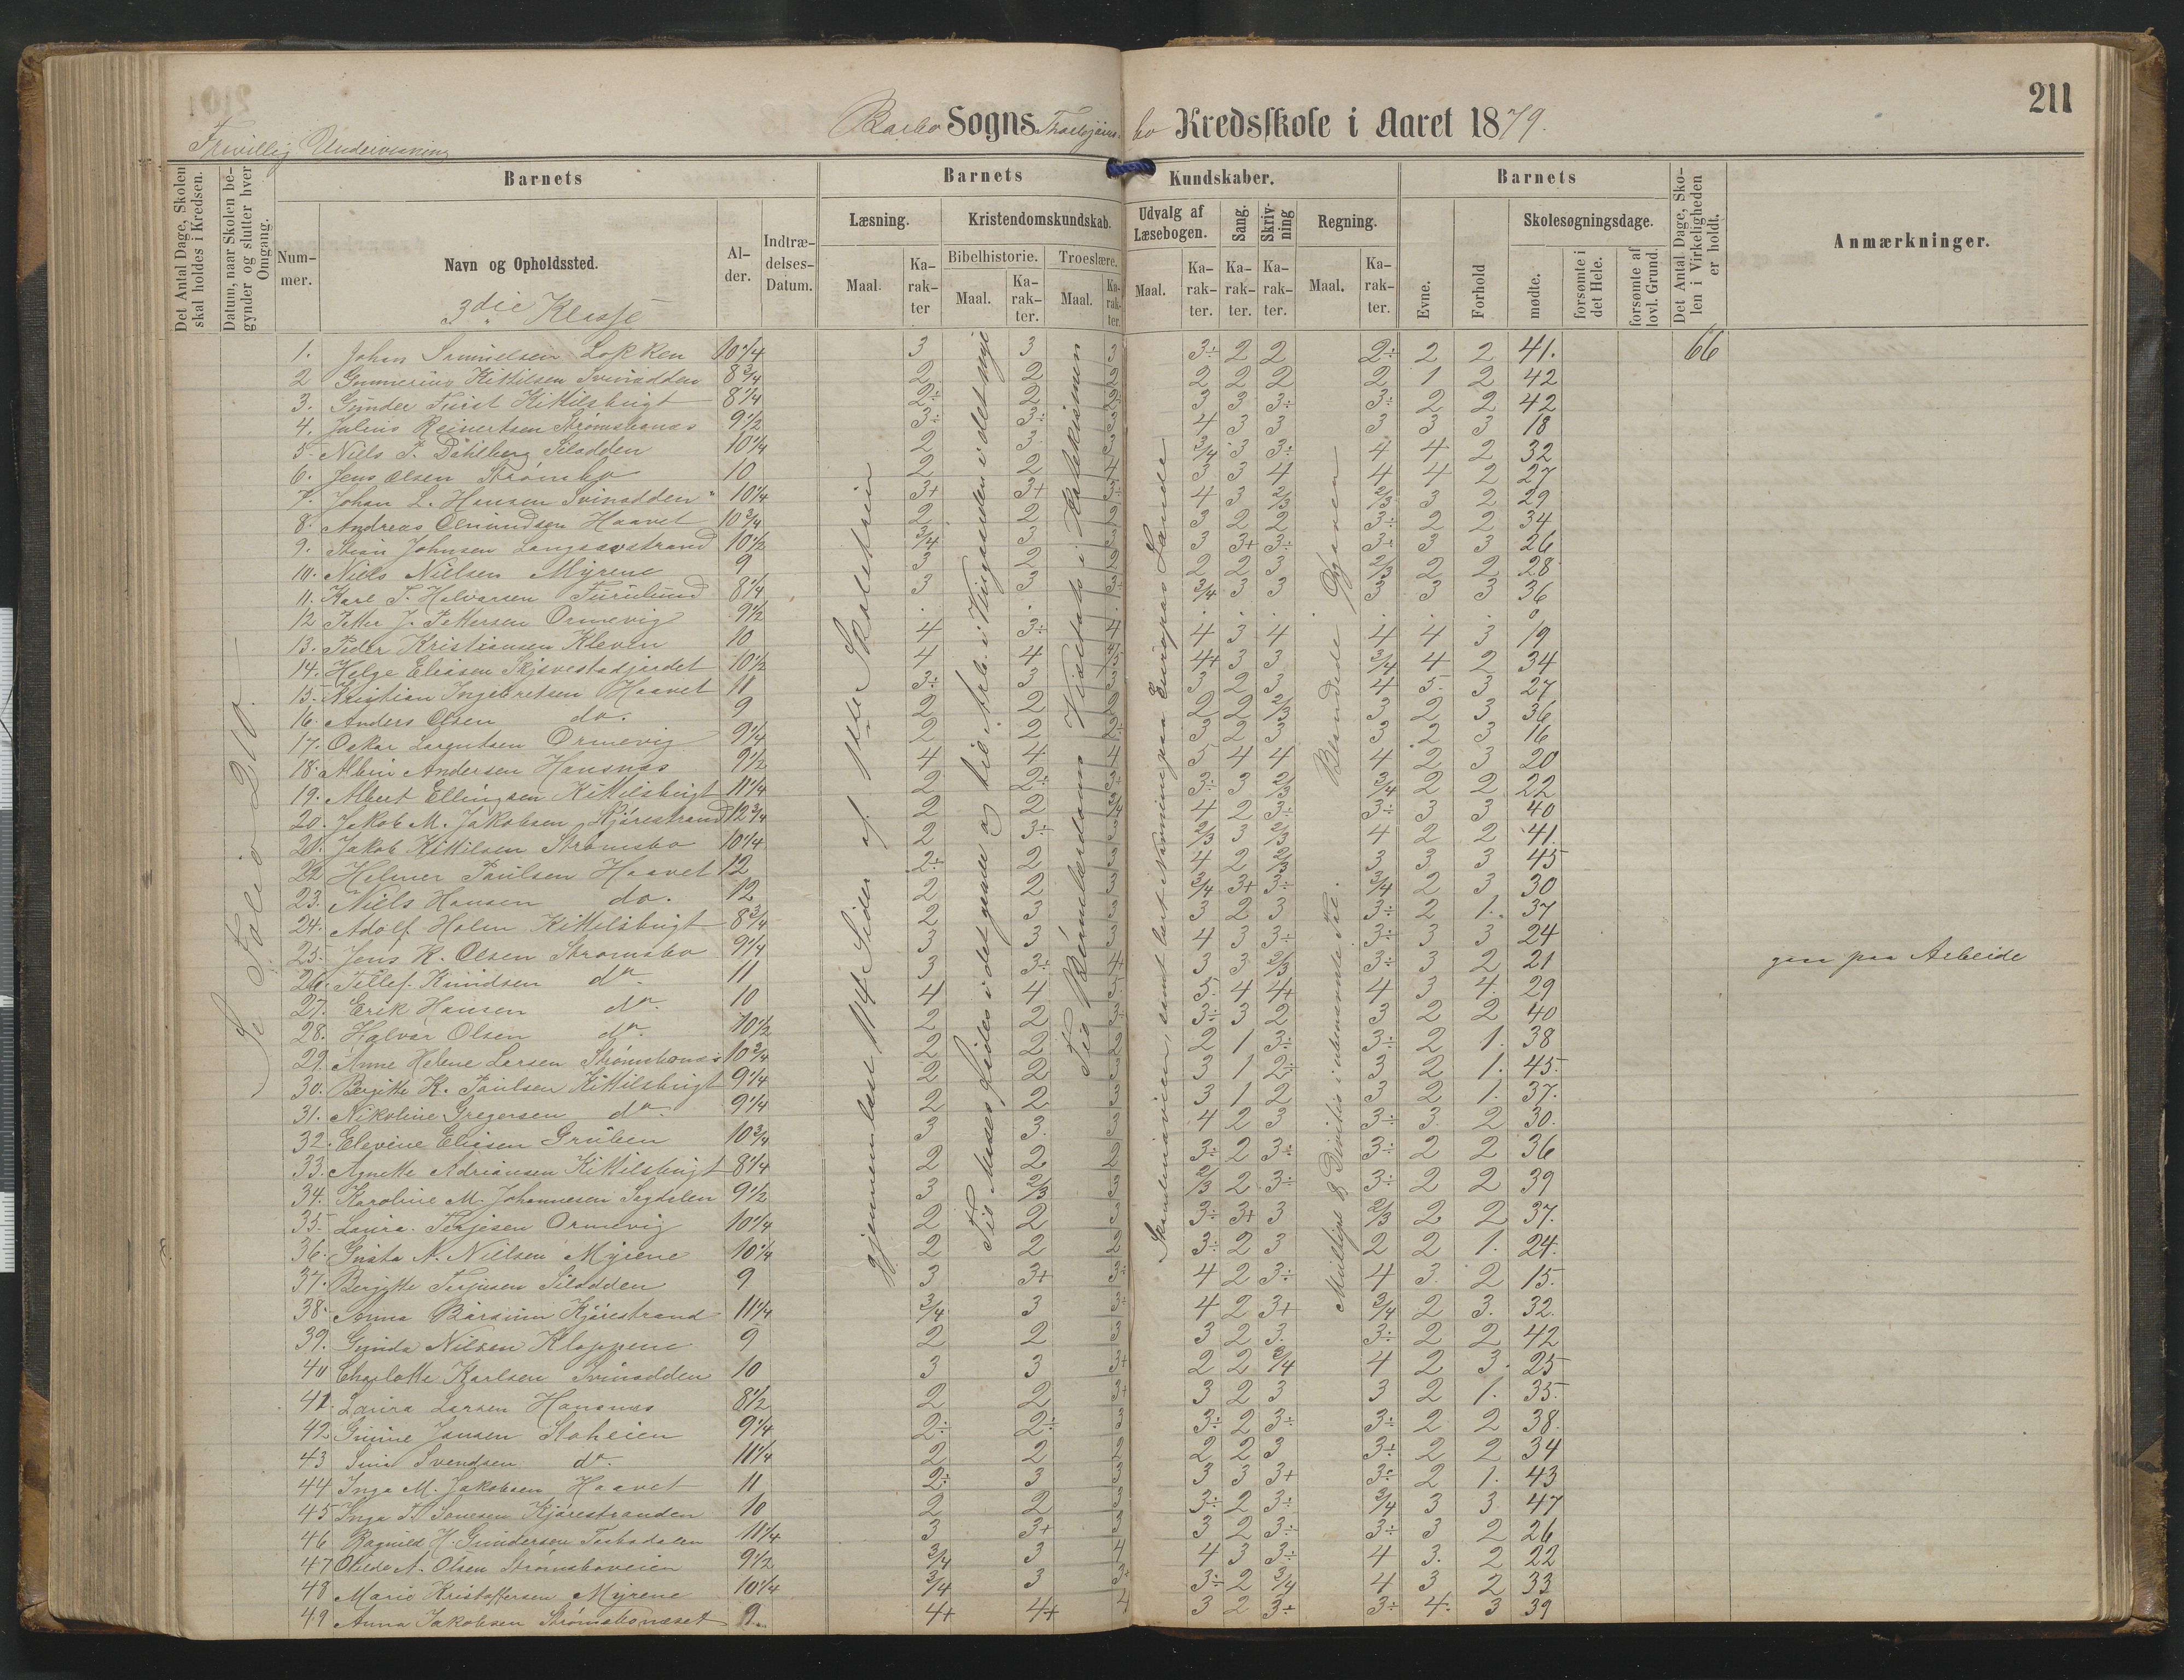 211
Barbo Sogns Kredsskole i Aaret 1879.
Frivillig Undervisning
Det Antal Dage, Skolen skal holdes i Kredsen.
Datum, naar Skolen begynder og slutter hver Omgang.
Barnets
Barnets Kundskaber.
Barnets
Det Antal Dage, Skolen i Virkeligheden er holdt.
Anmærkninger.
Nummer.
Navn og Opholdssted.
Alder.
Indtrædelses-Datum.
Læsning.
Kristendomskundskab.
Udvalg af Læsebogen.
Sang.
Skrivning
Regning.
Evne.
Forhold
Skolesøgningsdage.
Bibelhistorie.
Troeslære.
Maal. Karakter Maal. Karakter. Maal. Karakter. Maal. Karakter. Karakter. Karakter. Maal. Karakter.
mødte.
forsømte i det Hele.
forsømte af lovl. Grund.
3die Klasse
Se Folio 210
1. Johan Samuelsen 10 1/4 3 3 3 3÷ 2 2 2÷ 2 2 41. 66
2 Kittilsen Svinodden 8 3/4 2 2 2 2 2 2 2 1 2 42
3. Gunder Kittilsbugt 8 1/4 2÷ 2 3 3 3÷ 3÷ 2 2 42
4. Julius Reinertsen Strømsbonæs 9 1/2 3÷ 3÷ 3 4 3 3 3 3 3 18
5. Niels P. Dahlberg Silodden 10 1/4 2 3 3 3/4 3 3÷ 4 4 2 32
6. Jens Olsen Strømsbo 10 2 2 4 3 3 4 4 4 2 27
7. Johan L. Hansen Svinodden 10 1/4 3+ 3+ 4 3 2/3 2/3 3 2 29
8. Andreas Omundsen Haavet 10 3/4 2 2 2 3 2 2 3÷ 2 2 34
9. Johnsen Langsævstrand 10 1/2 3/4 3 3 3 3+ 3÷ 3÷ 3 3 26
10. Niels Nielsen Myrene 9 3 2 2 2 2 3 2/3 2 2 28
11. Karl T. Halvorsen Furulund 8 1/4 3 3 3÷ 3/4 3 3 3 3 3 36
12 Petter J. Pettersen Ormevig 9 1/2 . . . . . . . . . 0
13. Peder Kristiansen Kleven 10 4 3÷ 4 4 3 4 4 4 3 19
14. Helge Eliasen 10 1/2 4 4 4/5 4+ 3 3 3/4 4 2 34
15. Kristian Ingebretsen Haavet 11 3÷ 3 3 3 2 3 4 5. 3 27
16. Anders Olsen do. 9 2 2 2 2 2 2/3 3 2 3 36
17. Oskar Ormevig 9 1/4 2 2 2÷ 3 2 3 3 2 3 16
18. Albin Andersen Hansnæs 9 1/2 4 4 4 5 4 4 4 2 3 20
19. Albert Ellingsen Kittilsbugt 11 1/4 2 2÷ 3÷ 3÷ 3 2/3 3/4 2 2 22
20. Jakob M. Jakobsen Kjørestrand 12 3/4 2 2 3/4 4 2 3÷ 3÷ 3 3 40
21. Jakob Kittilsen Strømsbo 10 1/4 2 3÷ 3 2/3 3 2/3 4 2 2 41.
22 Helmer Paulsen Haavet 12 2÷ 2 3 4 2 2/3 3 3 3 45
23. Niels Hansen do. 12 2 2 3 3/4 3+ 3÷ 3/4 2 3 30
24. Adolf Holm Kittilsbugt 8 3/4 2 3 3 3 2 3 3÷ 2 1. 37
25. Jens K. Olsen Strømsbo 9 1/4 3 3 3 4 3 3÷ 3÷ 3 3 24
26. Tellef Knudsen do. 11 3 3÷ 4+ 3 3 2/3 3÷ 3 2 21 gaar paa Arbeide
27. Erik Hansen do. 10 4 4 5. 5. 4 4+ 4 3 4. 29
28. Halvor Olsen do. 10 1/2 2 2 3÷ 3 2 3 2 2 40
29. Anne Helene Larsen Strømsbonæs 10 3/4 2 2 2 2 1 3÷ 3÷ 2 1. 38
30. Bergitte K. Paulsen Kittilsbugt 9 1/4 2 2 3 3 1 2÷ 3 2 1. 45.
31. Nikoline Gregersen do. 9 1/4 2 2 3 3 1 2 3 2 1. 37.
32. Elevine Eliasen Gruben 10 3/4 3 3. 3 4 2 3 3÷ 3. 2 30.
33. Agnette Adriansen Kittilsbugt 8 1/4 2 2 2 3÷ 2 3÷ 3÷ 2 2 36
34. Karoline M. Johannesen Sagdalen 9 1/2 3 2/3 3 2/3 2 3÷ 3÷ 2 2 39
35. Laura Terjesen Ormevig 10 1/4 2 2 3 3÷ 3+ 3 2/3 2 2 37.
36. N. Nielsen Myrene 10 1/4 2 2 2 3÷ 2 3 2 2 1. 24.
37. Bergitte Terjesen Silodden 9 3 3+ 3÷ 4 2 3÷ 4 3. 2 15.
38. Anna Kjørestrand 11 1/4 3/4 3 3÷ 4 2 3+ 3/4 2 3. 32.
39. Gunda Nilsen Kloppene 9 2 2 3 3 2 3. 3÷ 2 2 42
40 Charlotte Karlsen Svinodden 10 3 3 3+ 2 2 3/4 4 2 3. 25
41. Laura Larsen Hansnæs 8 1/2 2 2 3+ 3 2 3 3 2 1. 35.
42 Jansen Stoheien 9 1/4 2÷ 2÷ 3 3÷ 2 3÷ 3÷ 2 2 38.
43 Svendsen do. 11 1/4 2 2 2 2 2 3 3÷ 2 2 34
44 Inga M. Jakobsen Haavet 11 2÷ 3 3 3 3 3+ 3÷ 2 1. 43
45 Inga Kjørestranden 10 2 2 3 3÷ 2 3÷ 3/4 3 3 47
46 Ragnild H. Gundersen 11 1/4 3 3+ 3 3 2 3÷ 3÷ 3 2 26
47 A. Olsen Strømsboveien 9 1/2 3/4 3 4 4 3 3÷ 4 3. 2 22
48 Marie Kristoffersen Myrene 10 1/4 3/4 3 3+ 3÷ 2 3/4 4 3 2 33
49 Anna Jakobsen Strømsbonæset 9. 4+ 4+ 4 3 2 3÷ 3÷ 4. 3 39
gjennemlæst 114 Sider af
Til Moses Lides i det gamle og til i det nye
Til i Katekismen
Skandinavien, samt kort paa Europas Lande
Multipl. & Division i ubenævnte Tal. Blandede Opgaver